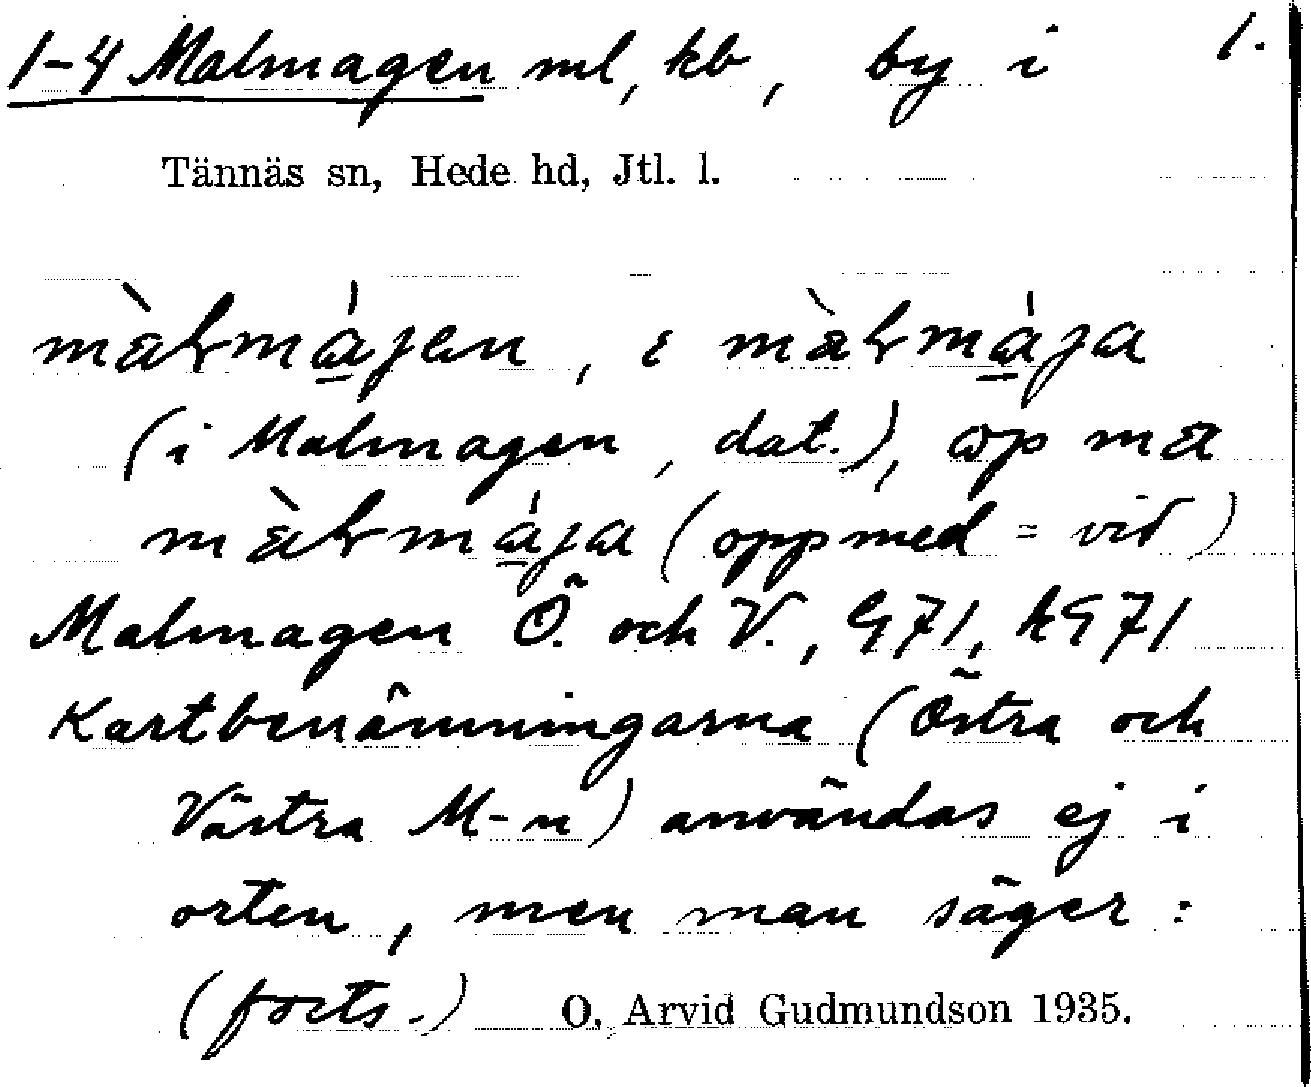 1-4 Malmagen ml, kb, by i 1.
Tännäs sn, Hede hd, Jtl. l.
màɫmájen, i màɫmája
(i Malmagen, dat.), op ma
màɫmája (opp med = vid)
Malmagen Ö. och V., G71, kG71
Kartbenämningarna (Östra och
Västra M-n) användas ej i
orten, men man säger:
(forts.) O. Arvid Gudmundson 1935.